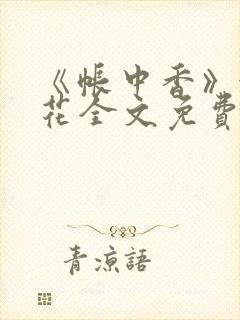 《帳中香》
花全文免費
青涼語